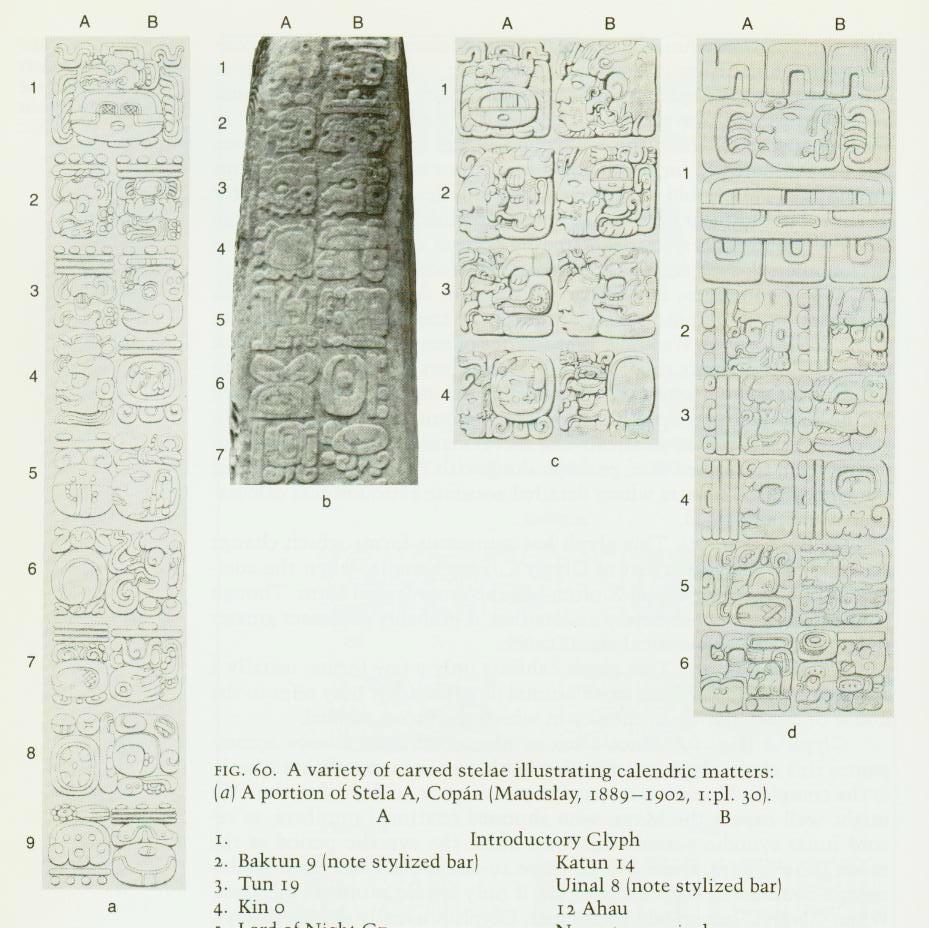 A B
1
2
3
4
5
6
7
8
9
a
A B
1
2
3
4
5
6
7
b
A B
1
2
3
4
c
A B
1
2
3
4
5
6
d
FIG. 60. A variety of carved stelae illustrating calendric matters:
(a) A portion of Stela A, Copán (Maudslay, 1889–1902, 1:pl. 30).
A B
1. Introductory Glyph
2. Baktun 9 (note stylized bar) Katun 14
3. Tun 19 Uinal 8 (note stylized bar)
4. Kin 0 12 Ahau